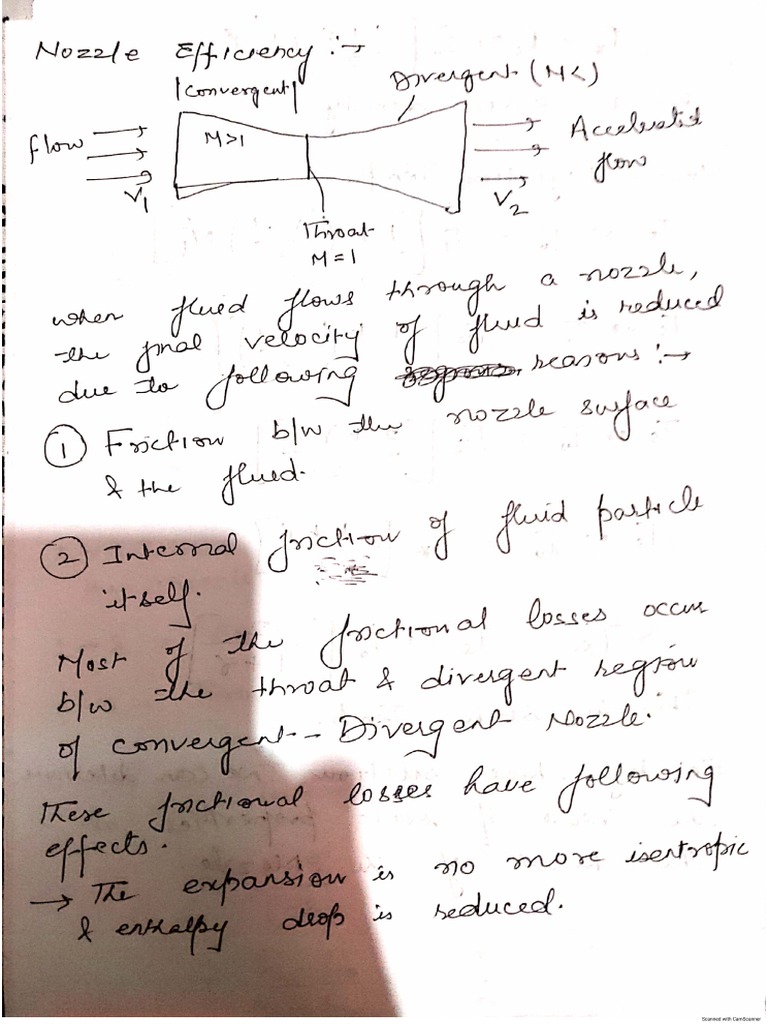 Nozzle Efficiency :→
|Convergent|
Divergent (M<)
flow
M>1
Accelerated
flow
V1
V2
Throat
M = 1
when fluid flows through a nozzle,
the final velocity of fluid is reduced
due to following reasons :→
① Friction b/w the nozzle surface
& the fluid.
② Internal friction of fluid particle
itself.
Most of the frictional losses occur
b/w the throat & divergent region
of convergent - Divergent Nozzle.
These frictional losses have following
effects.
→ The expansion is no more isentropic
& enthalpy drop is reduced.
Scanned with CamScanner